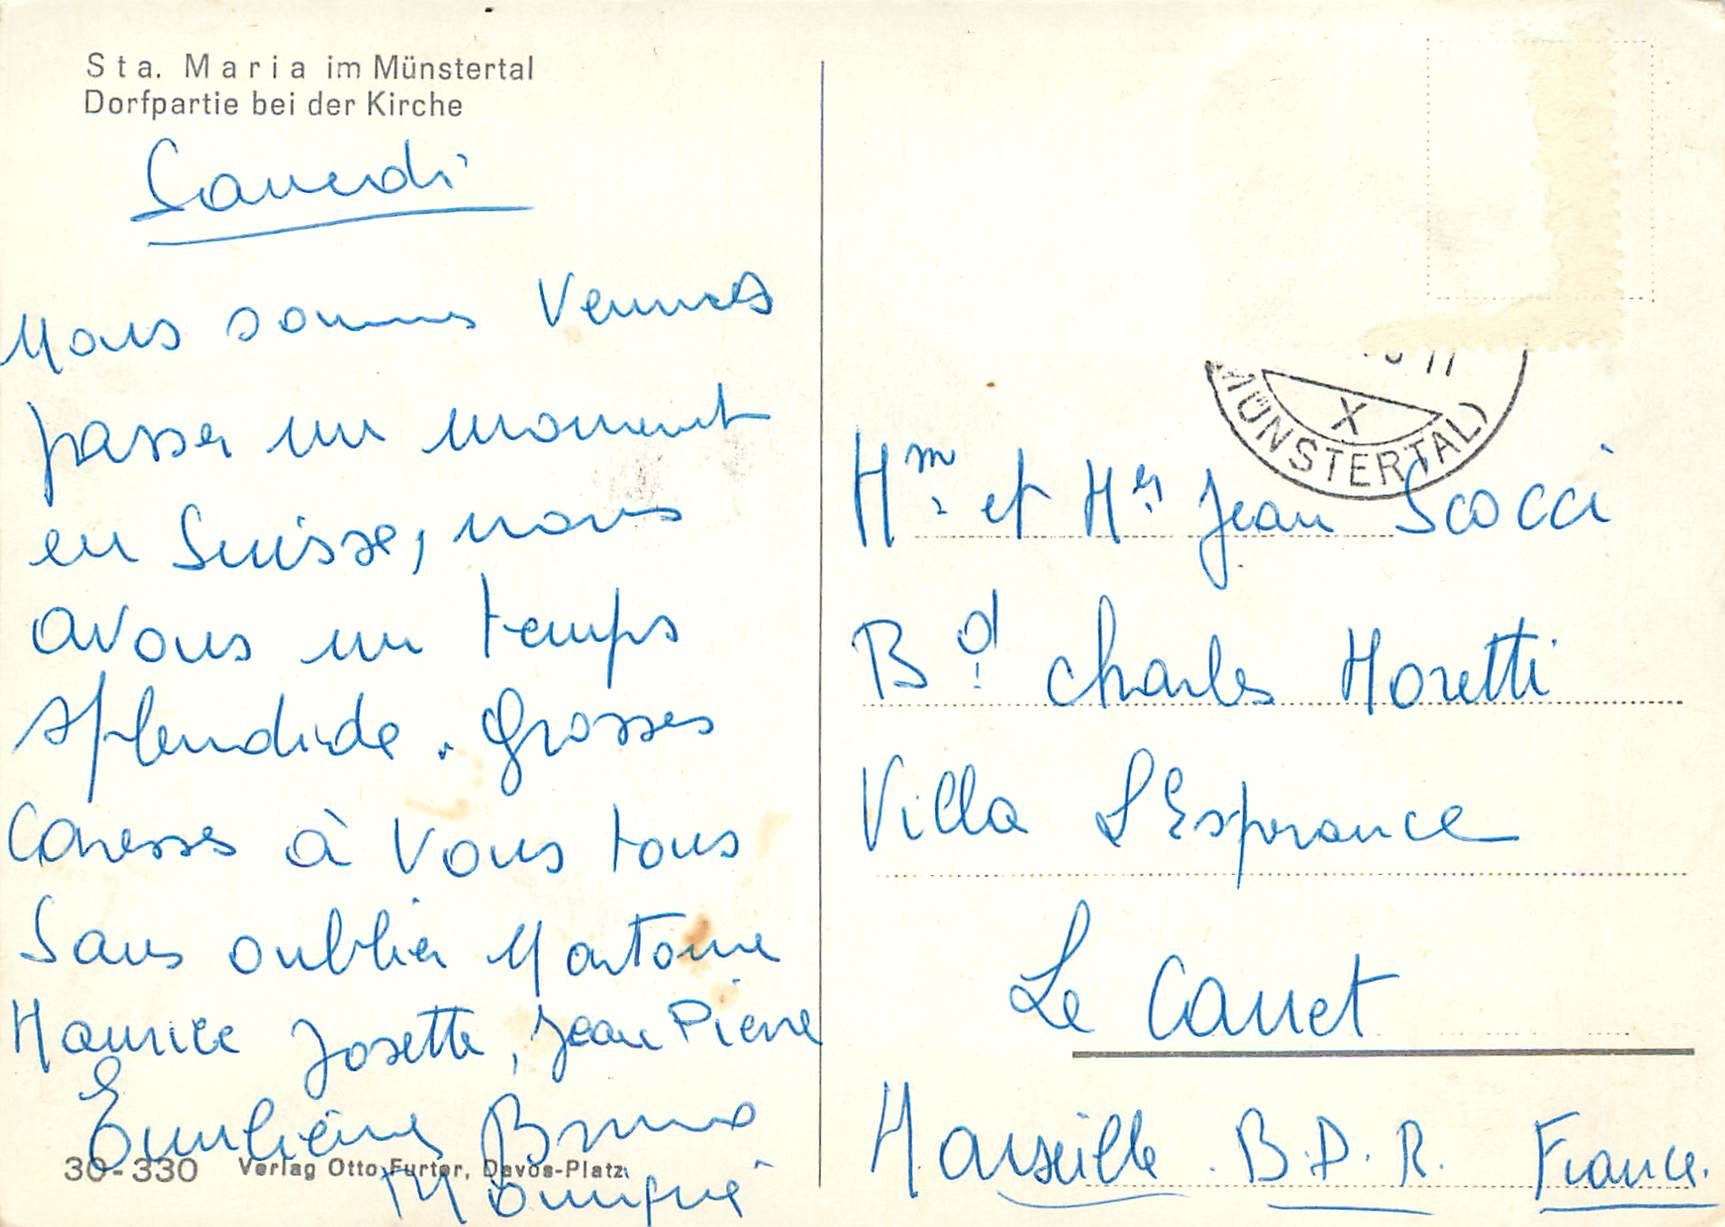 Sta. Maria im Münstertal
Dorfpartie bei der Kirche
Samedi
Nous sommes venues
passer un moment
en Suisse, nous
avons un temps
splendide. Grosses
Caresses à vous tous
Sans oublier
Maurice Josette, Jean Pierre
Emilienne Bruno
30-330 Verlag Otto Furter, Davos-Platz
MÜNSTERTAL)
X
11
Mme et Mr Jean Scocci
Bd Charles Moretti
Villa L'Esperance
Le Canet
Marseille. B.D.R. France.